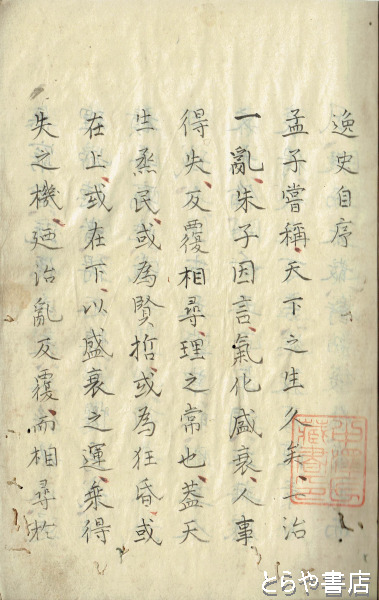 逸史自序
孟子嘗稱天下之生久矣一治
一亂朱子因言氣化盛衰人事
得失反覆相尋理之常也蓋天
生烝民或為賢哲或為狂昏或
在上或在下以盛衰之運乗得
失之機廼治亂反覆而相尋於
とらや書店